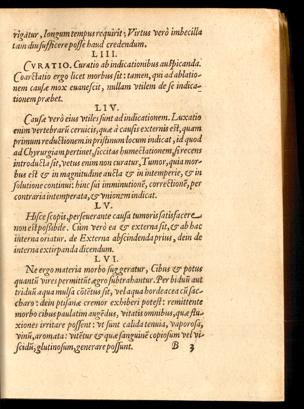 rigatur, longum tempus requirit; Virtus verò imbecilla
tam diu sufficere posse haud credendum.
LIII.
CVRATIO. Curatio ab indicationibus auspicanda.
Coarctatio ergo licet morbus sit: tamen, qui ad ablatio-
nem causæ mox euanescit, nullam vtilem de se indica-
tionem præbet.
LIV.
Causæ verò eius vtiles sunt ad indicationem. Luxatio
enim vertebrarũ ceruicis, quæ à causis externis est, quam
primum reductionem in pristinum locum indicat, id quod
ad Chyrurgiam pertinet, siccitas humectationem, si recens
introducta sit, vetus enim non curatur, Tumor, quia mor-
bus est & in magnitudine aucta & in intemperie, & in
solutione continui: hinc sui imminutionẽ, correctionẽ, per
contraria intemperata, & vnionem indicat.
LV.
Hisce scopis, perseuerante causa tumoris satisfacere
non est possibile. Cum verò ea & externa sit, & ab hac
interna oriatur. de Externa abscindenda prius, dein de
interna extirpanda dicendum.
LVI.
Ne ergo materia morbo suggeratur, Cibus & potus
quantũ vires permittũt ægro subtrahantur. Per biduũ aut
triduũ aqua mulsa cõtẽtus sit, vel aqua hordeacea cũ sac-
charo: dein ptisanæ cremor exhiberi potest: remittente
morbo cibus paulatim augẽdus, vitatis omnibus, quæ flu-
xiones irritare possent: vt sunt calida tenuia, vaporosa,
vinũ, aromata: vitẽtur & quæ sanguinẽ copiosum vel vi-
scidũ, glutinosum, generare possunt.
B 3